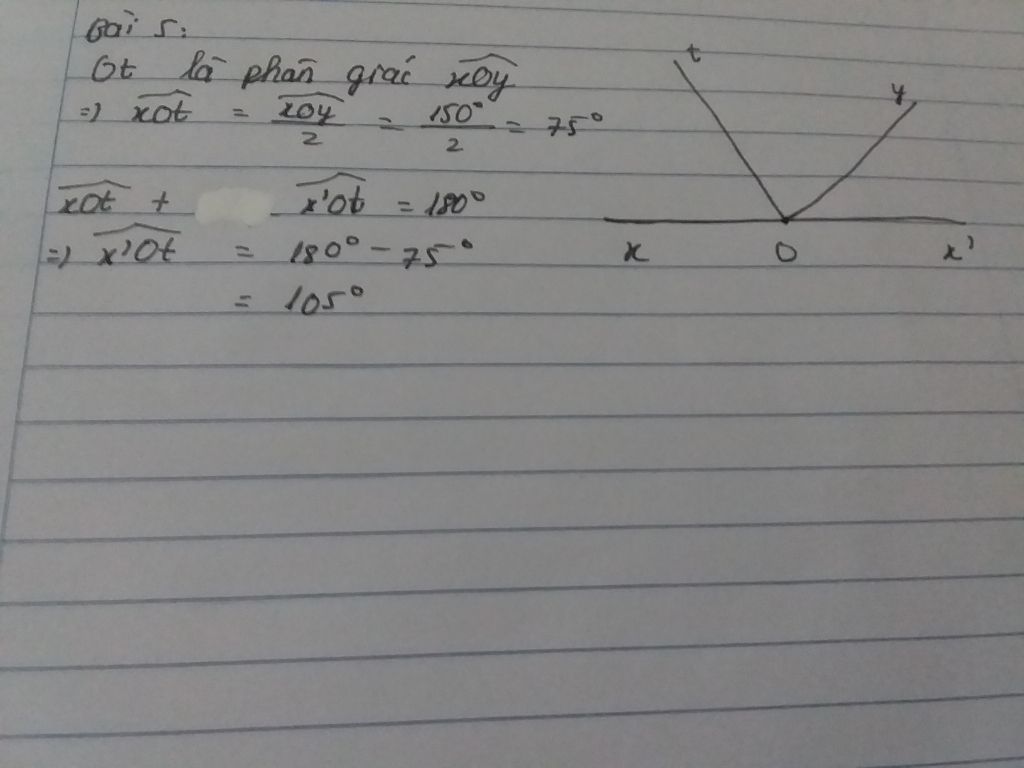 Bài 5:
Ot là phân giác xOy
=> xOt = xOy/2 = 150°/2 = 75°
xOt + x'Ot = 180°
=> x'Ot = 180° - 75°
= 105°
t
y
x O x'